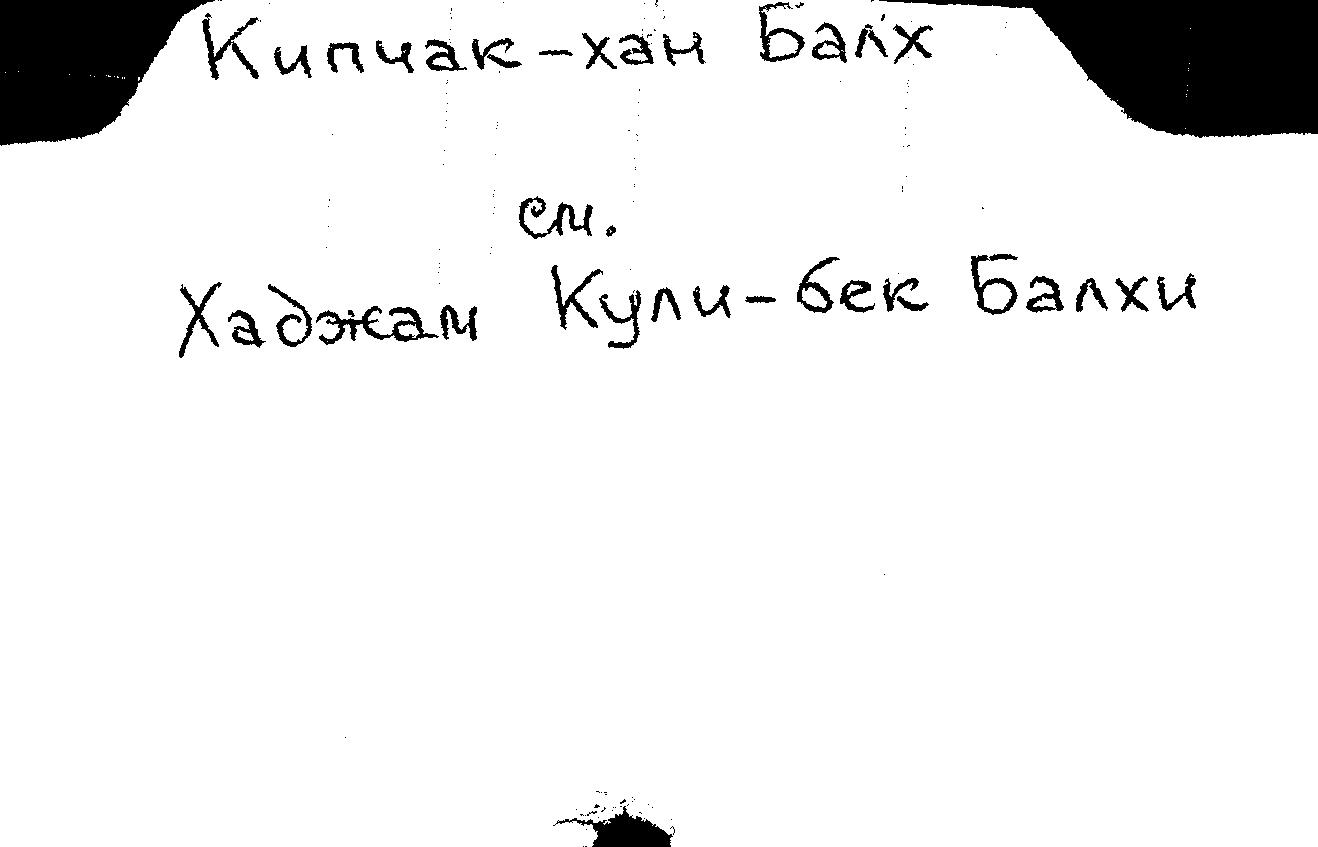 Кипчак-хан Балх
см.
Хаджам Кули-бек Балхи